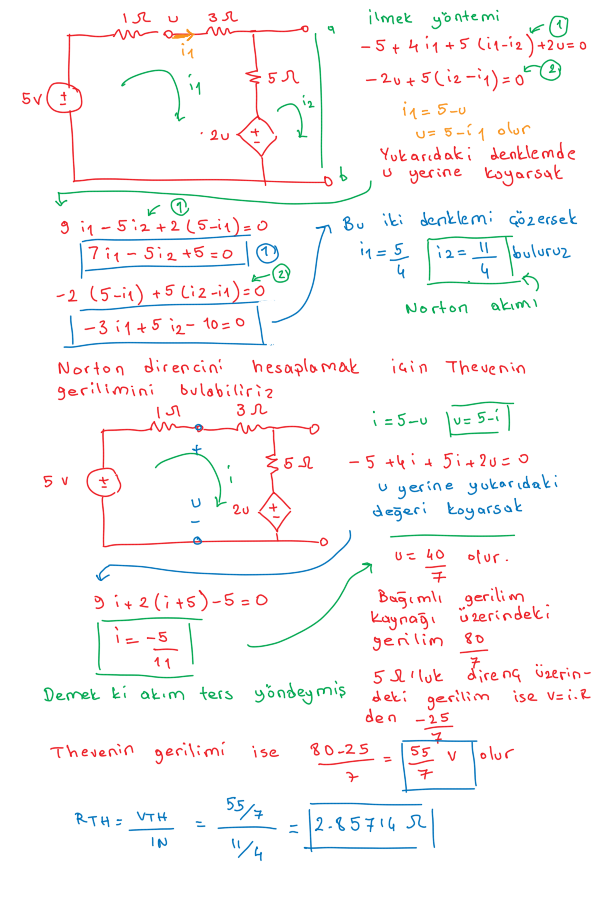 1Ω u 3Ω
i1
a
5V
i1
5Ω
i2
2u
b
ilmek yöntemi
-5 + 4 i1 + 5 (i1-i2) + 2u = 0 ①
-2u + 5(i2 - i1) = 0 ②
i1 = 5-u
u = 5-i1 olur
Yukarıdaki denklemde
u yerine koyarsak
①
9 i1 - 5 i2 + 2 (5-i1) = 0
7 i1 - 5 i2 + 5 = 0 ①
②
-2 (5-i1) + 5 (i2-i1) = 0
-3 i1 + 5 i2 - 10 = 0
Bu iki denklemi çözersek
i1 = 5/4 i2 = 11/4 buluruz
Norton akımı
Norton direncini hesaplamak için Thevenin
gerilimini bulabiliriz
1Ω 3Ω
+
5 V
i
5Ω
u
2u
-
i = 5-u u = 5-i
-5 + 4i + 5i + 2u = 0
u yerine yukarıdaki
değeri koyarsak
9 i + 2 (i+5) - 5 = 0
i = -5/11
Demek ki akım ters yöndeymiş
u = 40/7 olur.
Bağımlı gerilim
kaynağı üzerindeki
gerilim 80/7
5 Ω'luk direnç üzerin-
deki gerilim ise V=i.R
den -25/7
Thevenin gerilimi ise 80-25/7 = 55/7 V olur
RTH = VTH/IN = 55/7/11/4 = 2.85714 Ω